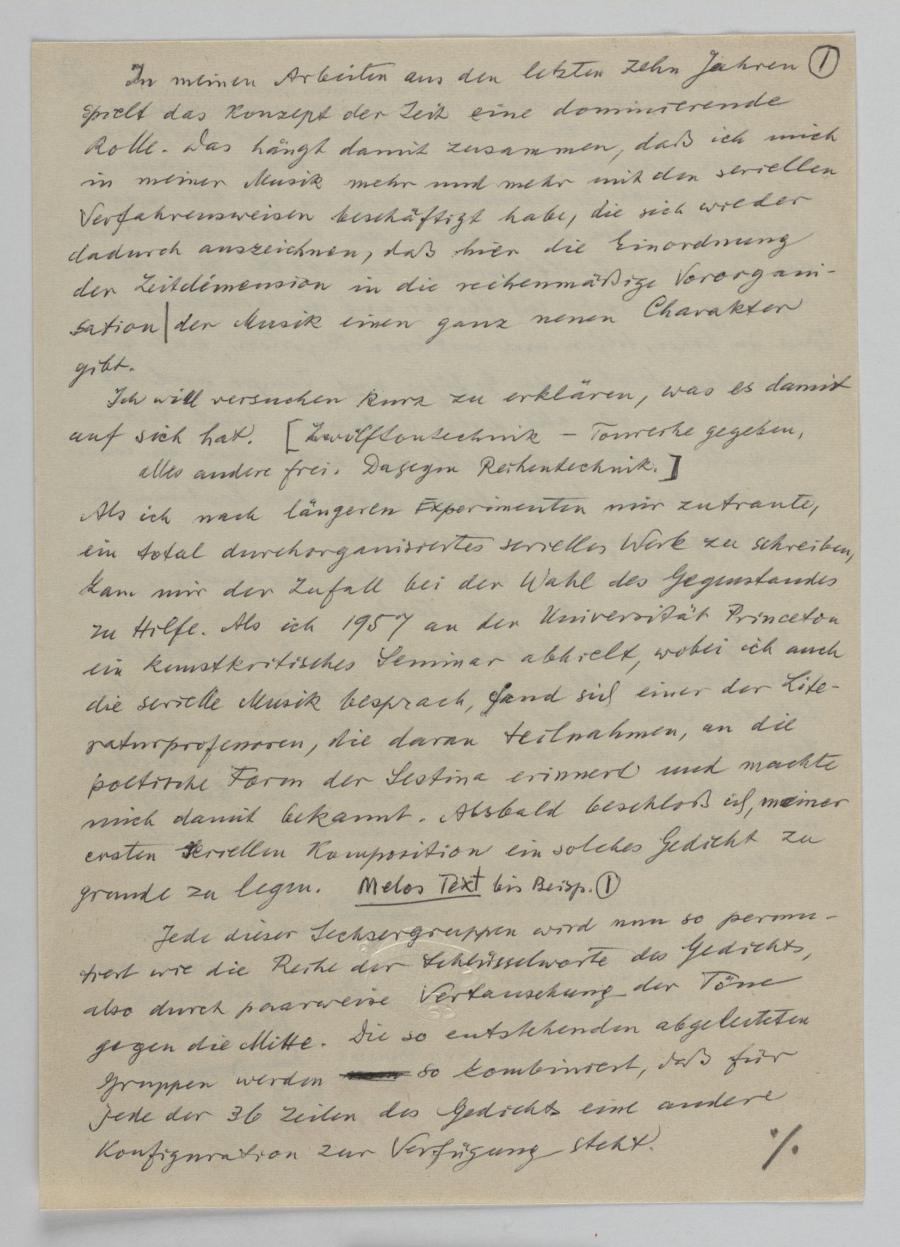 In meinen Arbeiten aus den letzten zehn Jahren ①
spielt das Konzept der Zeit eine dominierende
Rolle. Das hängt damit zusammen, daß ich mich
in meiner Musik mehr und mehr mit den seriellen
Verfahrensweisen beschäftigt habe, die sich wieder
dadurch auszeichnen, daß hier die Einordnung
der Zeitdimension in die reihenmäßige Vororgani-
sation | der Musik einen ganz neuen Charakter
gibt.
Ich will versuchen kurz zu erklären, was es damit
auf sich hat. [Zwölftontechnik – Tonreihe gegeben,
alles andere frei. Dagegen Reihentechnik.]
Als ich nach längeren Experimenten mir zutraute,
ein total durchorganisiertes serielles Werk zu schreiben,
kam mir der Zufall bei der Wahl des Gegenstandes
zu Hilfe. Als ich 1957 an der Universität Princeton
ein kunstkritisches Seminar abhielt, wobei ich auch
die serielle Musik besprach, fand sich einer der Lite-
raturprofessoren, die daran teilnahmen, an die
poetische Form der Sestina erinnert und machte
mich damit bekannt. Alsbald beschloß ich, meiner
ersten seriellen Komposition ein solches Gedicht zu
grunde zu legen. Melos Text bis Beisp. ①
Jede dieser Sechsergruppen wird nun so permu-
tiert wie die Reihe der Schlüsselworte des Gedichts,
also durch paarweise Vertauschung der Töne
gegen die Mitte. Die so entstehenden abgeleiteten
Gruppen werden so kombiniert, daß für
jede der 36 Zeilen des Gedichts eine andere
Konfiguration zur Verfügung steht.
./.